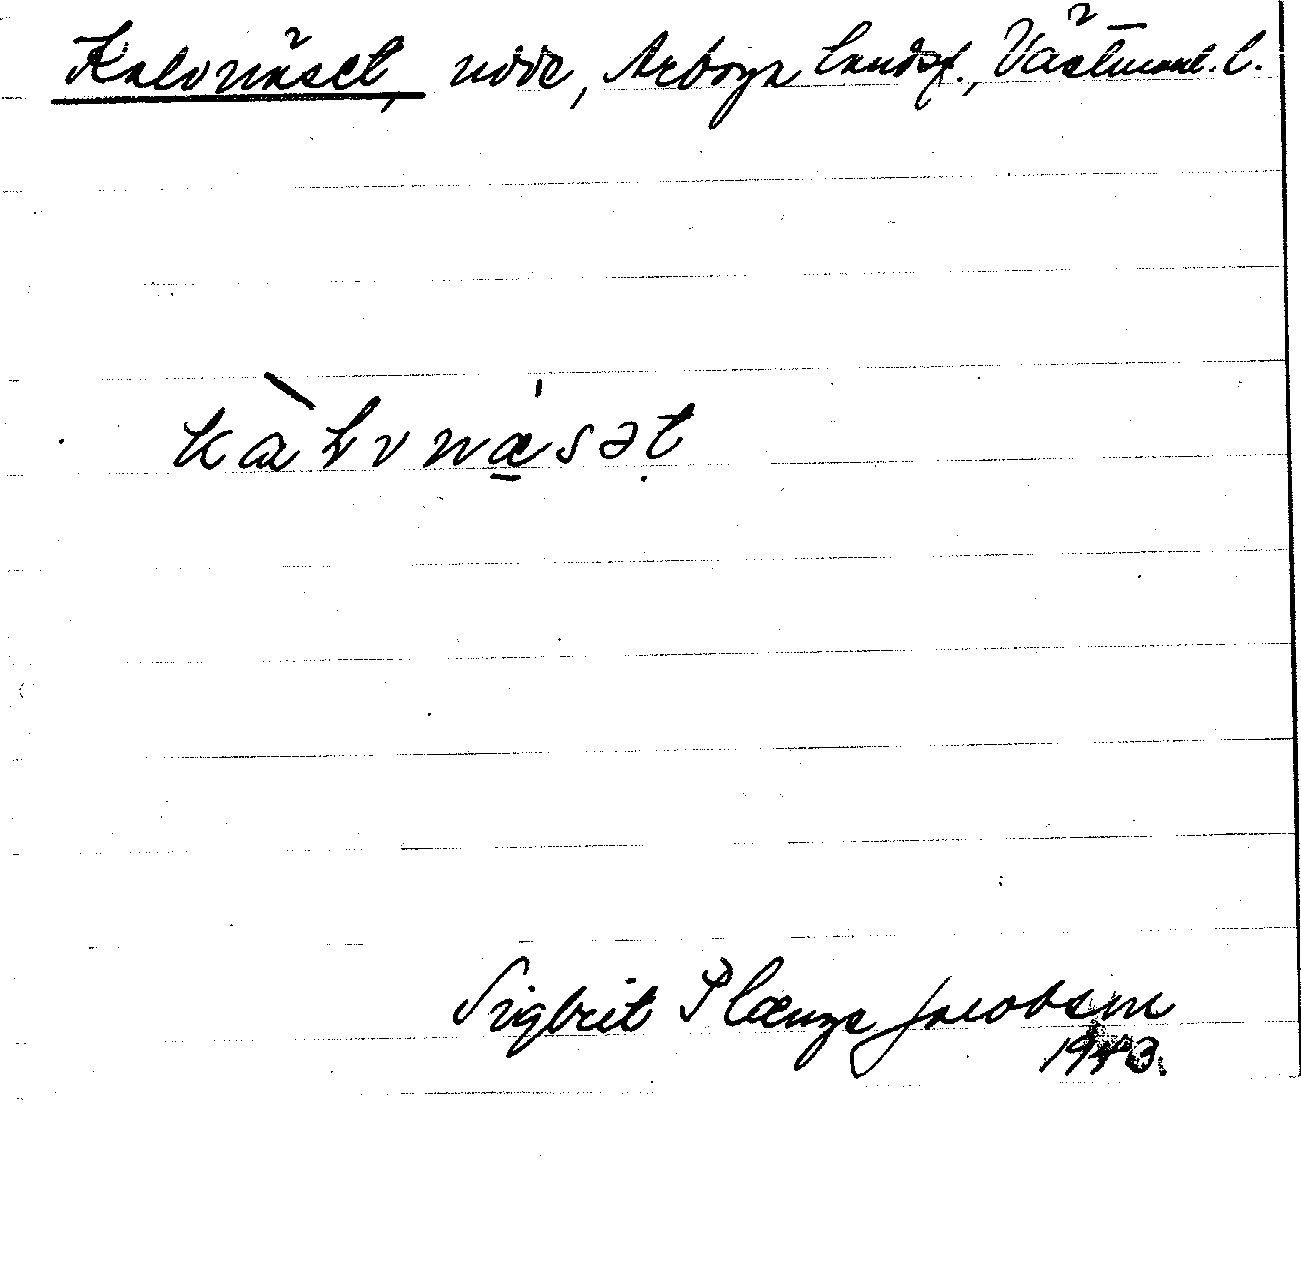 Kalvnäset, udde, Arboga landsf., Västmanl. l.
kàlvnæ̠ˈsət
Sigbrit Plænge Jacobson
1943.